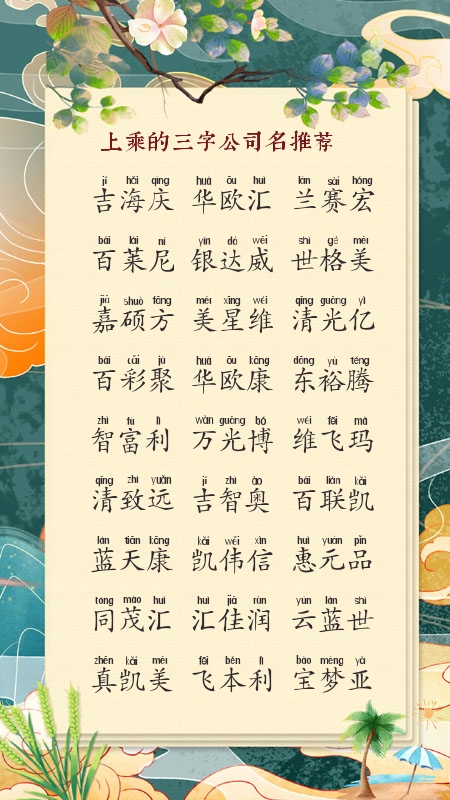 上乘的三字公司名推荐
jí hǎi qìng huá ōu huì lán sài hóng
吉海庆 华欧汇 兰赛宏
bǎi lái ní yín dá wēi shì gé měi
百莱尼 银达威 世格美
jiā shuò fāng měi xīng wéi qīng guāng yì
嘉硕方 美星维 清光亿
bǎi cǎi jù huá ōu kāng dōng yù téng
百彩聚 华欧康 东裕腾
zhì fù lì wàn guāng bó wéi fēi mǎ
智富利 万光博 维飞玛
qīng zhì yuǎn jí zhì ào bǎi lián kǎi
清致远 吉智奥 百联凯
lán tiān kāng kǎi wěi xìn huì yuán pǐn
蓝天康 凯伟信 惠元品
tóng mào huì huì jiā rùn yún lán shì
同茂汇 汇佳润 云蓝世
zhēn kǎi měi fēi běn lì bǎo mèng yà
真凯美 飞本利 宝梦亚